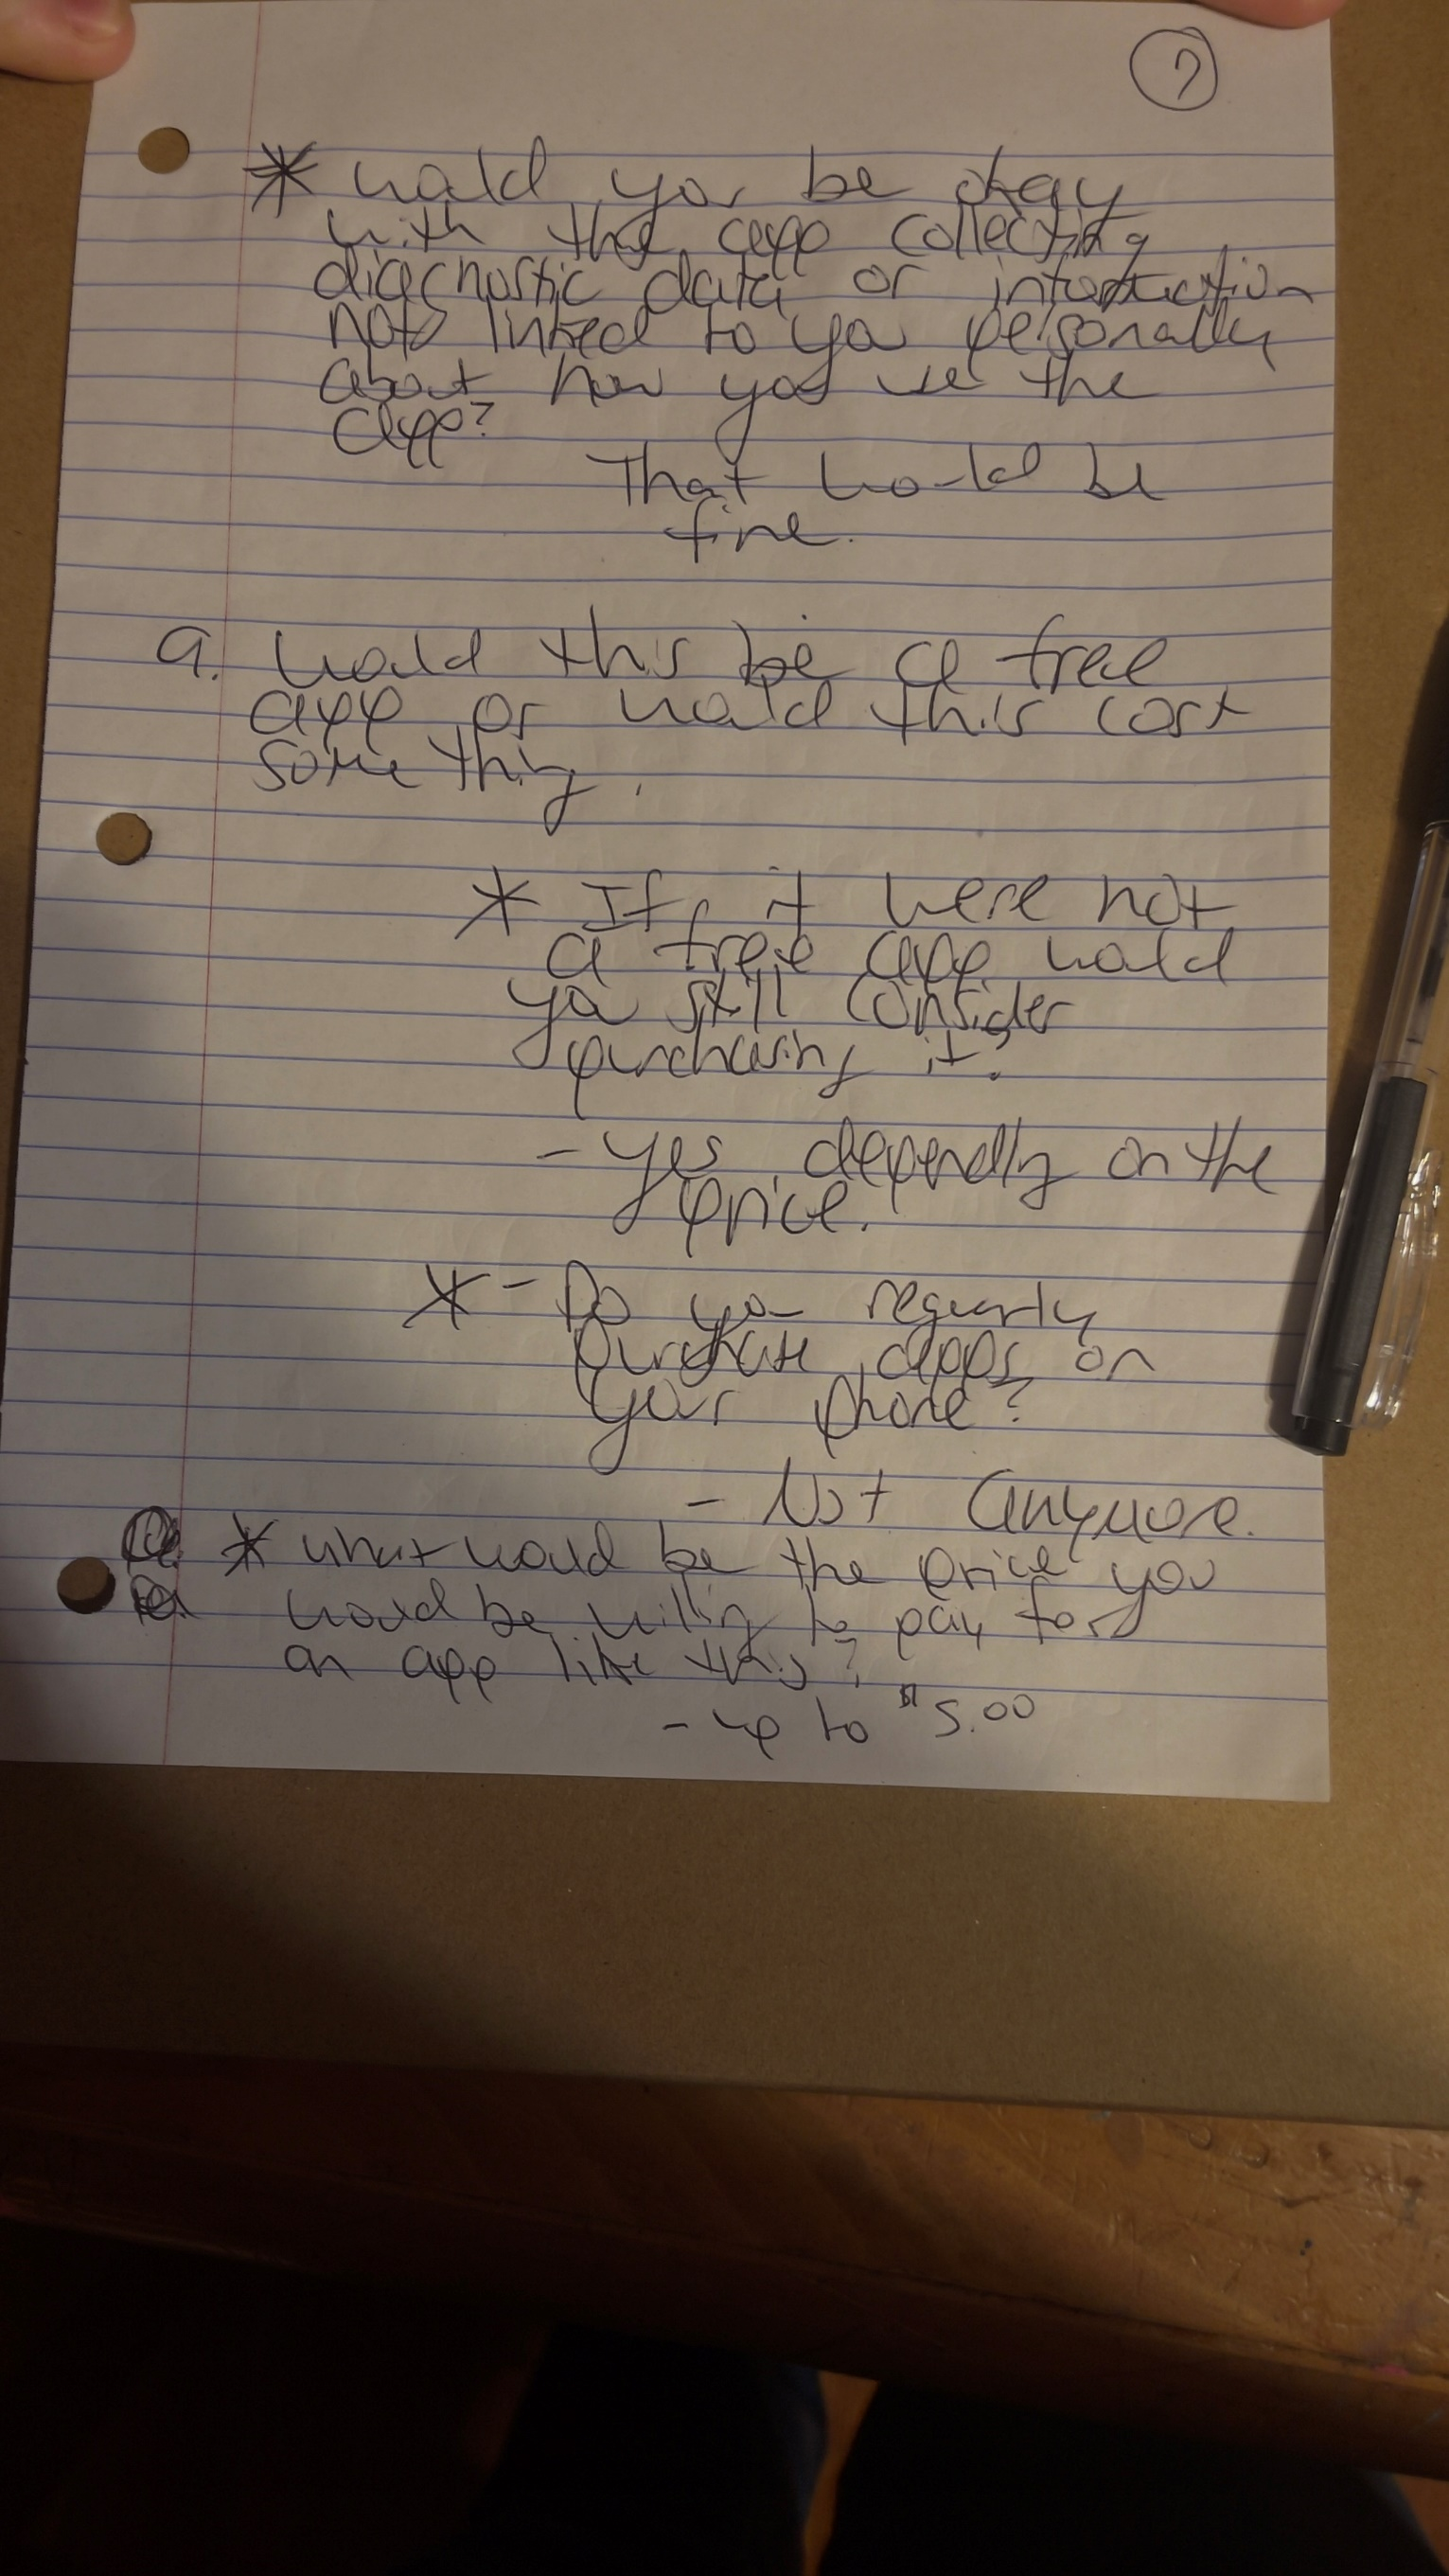 7
* would you be okay
with the app collecting
diagnostic data or information
not linked to you personally
about how you use the
app?
That would be
fine.
9. Would this be a free
app or would this cost
something.
* If it were not
a free app would
you still consider
purchasing it?
- Yes, depending on the
price.
* - Do you regularly
purchase apps on
your phone?
- Not anymore.
* What would be the price you
would be willing to pay for
an app like this?
- up to $5.00